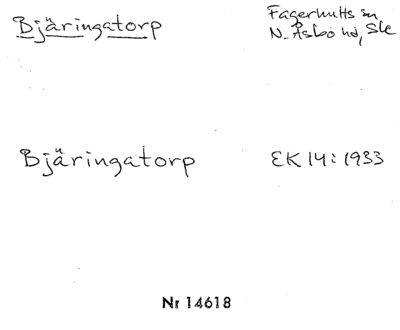 Bjäringatorp
Fagerhults sn
N. Åsbo hd, Sk
Bjäringatorp
EK 14: 1933
Nr 14618